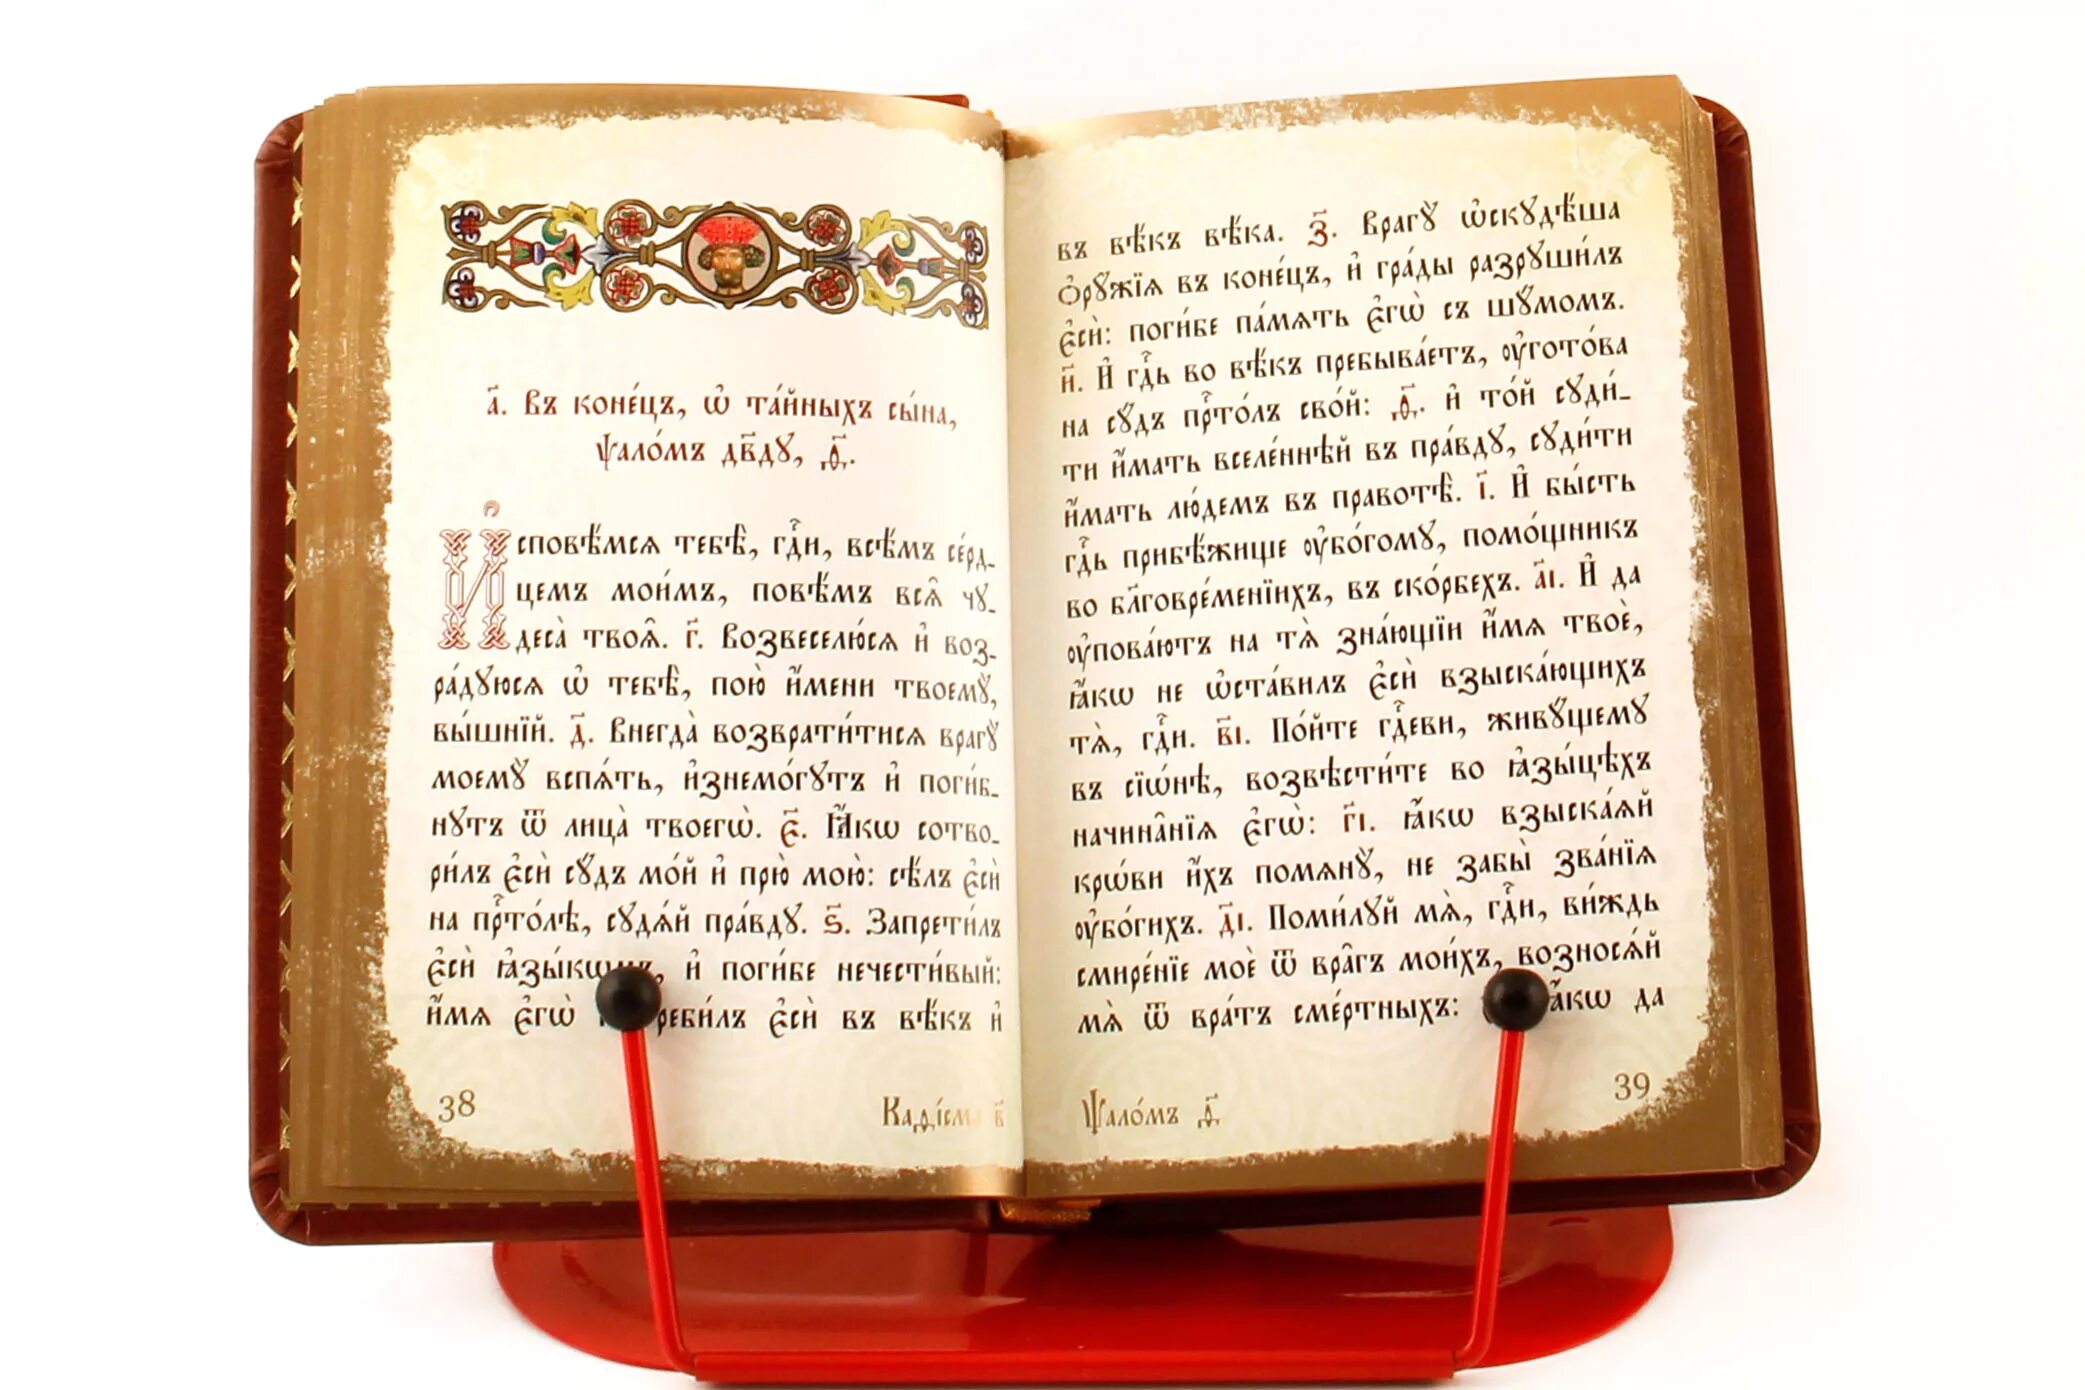 а҃. Въ коне́цъ, ѡ҆ та́йныхъ сы́на,
ѱало́мъ дв҃ду, ѳ҃.
И҆сповѣ́мся тебѣ̀, гдⷭ҇и, всѣ́мъ се́рд_
цемъ мои́мъ, повѣ́мъ всѧ̑ чꙋ_
деса̀ твоѧ̑. г҃. Возвеселю́сѧ и҆ воз_
ра́дꙋюсѧ ѡ҆ тебѣ̀, пою̀ и҆́мени твоемꙋ̀,
вы́шнїй. д҃. Внегда̀ возврати́тисѧ врагꙋ̀
моемꙋ̀ вспѧ́ть, и҆знемо́гꙋтъ и҆ поги́б_
нꙋтъ ѿ лица̀ твоегѡ̀. є҃. Ꙗ҆́кѡ сотво_
ри́лъ є҆сѝ сꙋ́дъ мо́й и҆ прю̀ мою̀: сѣ́лъ є҆сѝ
на прⷭ҇то́лѣ, сꙋдѧ́й пра́вдꙋ. ѕ҃. Запрети́лъ
є҆сѝ ꙗ҆зы́кѡмъ, и҆ поги́бе нечести́вый:
и҆́мѧ є҆гѡ̀ реби́лъ є҆сѝ въ вѣ́къ и҆
38
Каѳі́сма в҃
въ вѣ́къ вѣ́ка. з҃. Врагꙋ̀ ѡ҆скꙋдѣ́ша
ѻ҆рꙋ̑жїѧ въ коне́цъ, и҆ гра́ды разрꙋши́лъ
є҆сѝ: поги́бе па́мѧть є҆гѡ̀ съ шꙋ́момъ.
и҃. И҆ гдⷭ҇ь во вѣ́къ пребыва́етъ, ᲂу҆гото́ва
на сꙋ́дъ прⷭ҇то́лъ сво́й: ѳ҃. и҆ то́й сꙋди́_
ти и҆́мать вселе́ннѣй въ пра́вдꙋ, сꙋди́ти
и҆́мать лю́демъ въ правотѣ̀. і҃. И҆ бы́сть
гдⷭ҇ь прибѣ́жище ᲂу҆бо́гомꙋ, помо́щникъ
во бл҃говре́менїихъ, въ ско́рбехъ. а҃і. И҆ да
ᲂу҆пова́ютъ на тѧ̀ зна́ющїи и҆́мѧ твоѐ,
ꙗ҆́кѡ не ѡ҆ста́вилъ є҆сѝ взыска́ющихъ
тѧ̀, гдⷭ҇и. в҃і. По́йте гдⷭ҇еви, живꙋ́щемꙋ
въ сїѡ́нѣ, возвѣсти́те во ꙗ҆зы́цѣхъ
начина̑нїѧ є҆гѡ̀: г҃і. ꙗ҆́кѡ взыска́ѧй
крѡ́ви и҆́хъ помѧнꙋ̀, не забы̀ зва́нїѧ
ᲂу҆бо́гихъ. д҃і. Поми́лꙋй мѧ̀, гдⷭ҇и, ви́ждь
смире́нїе моѐ ѿ вра̑гъ мои́хъ, возносѧ́й
мѧ̀ ѿ вра́тъ сме́ртныхъ: ꙗ҆́кѡ да
39
Ѱало́мъ ѳ҃